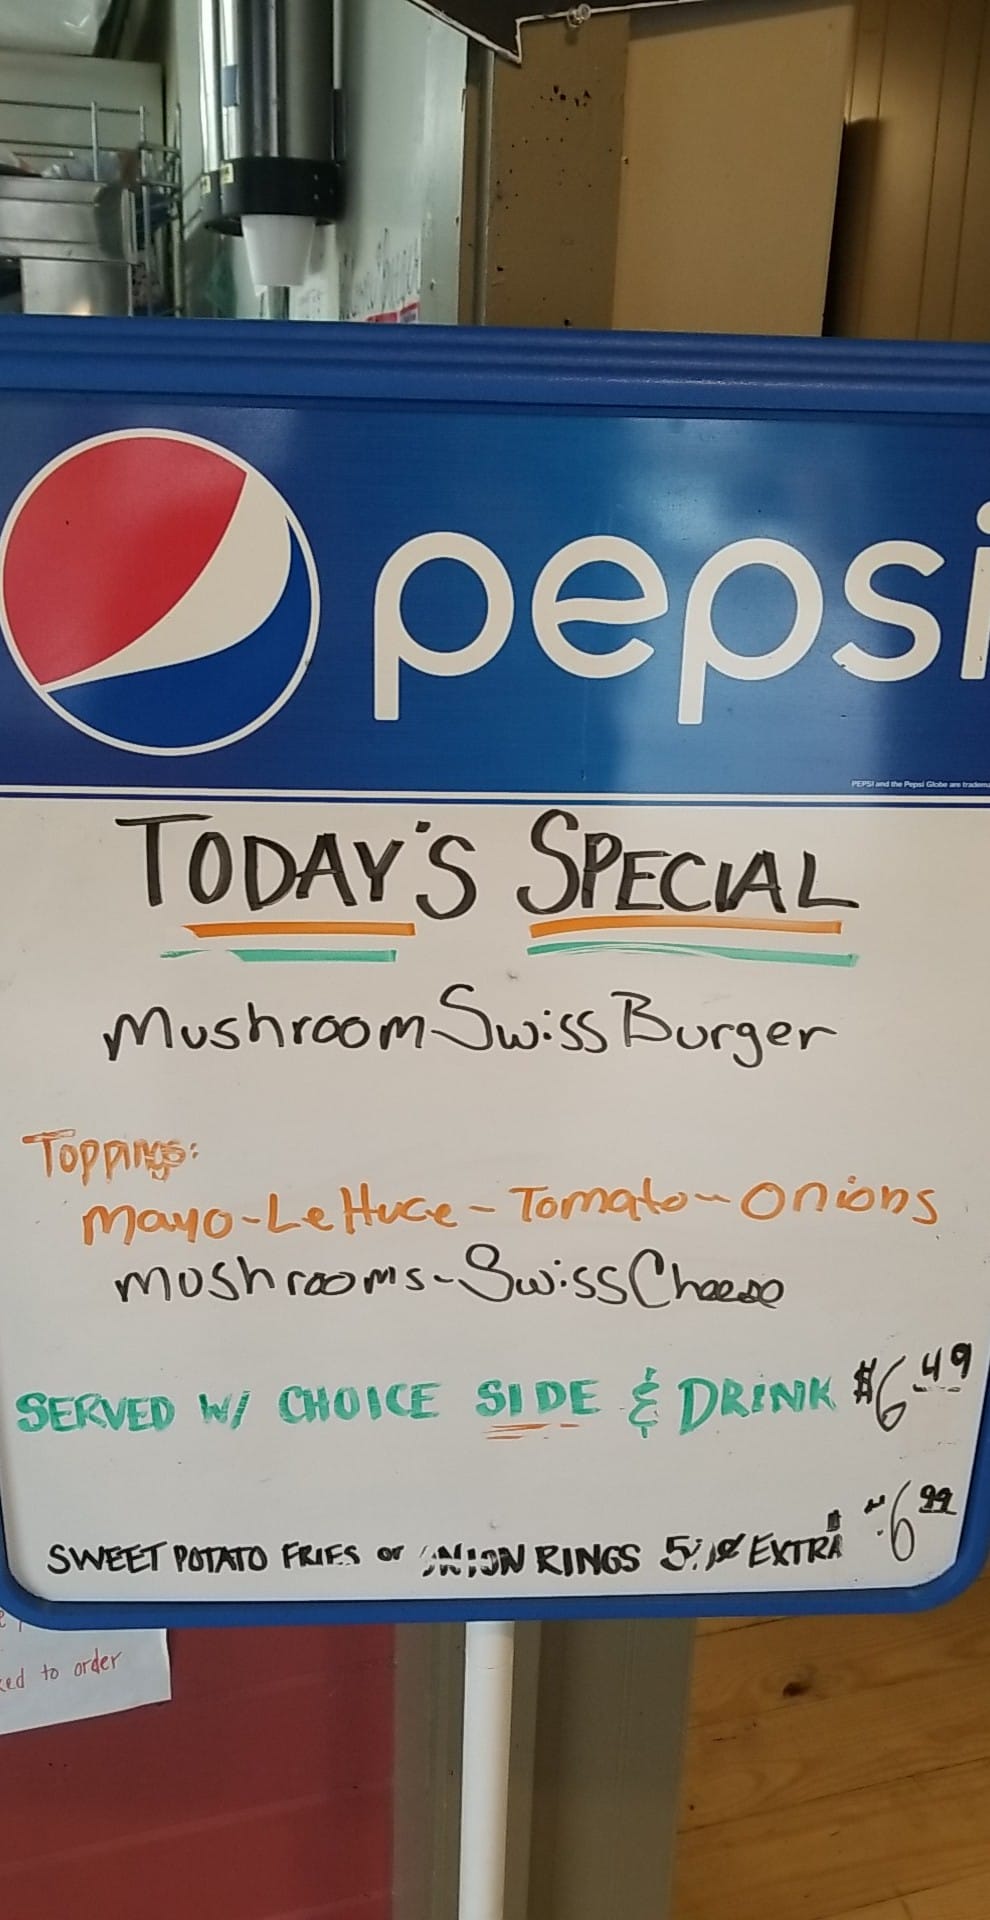 pepsi
PEPSI and the Pepsi Globe are tradema
TODAY'S SPECIAL
Mushroom Swiss Burger
Toppings:
Mayo - Lettuce - Tomato - Onions
Mushrooms - Swiss Cheese
SERVED W/ CHOICE SIDE & DRINK $6.49
SWEET POTATO FRIES or ONION RINGS 50¢ EXTRA 6.99
to order